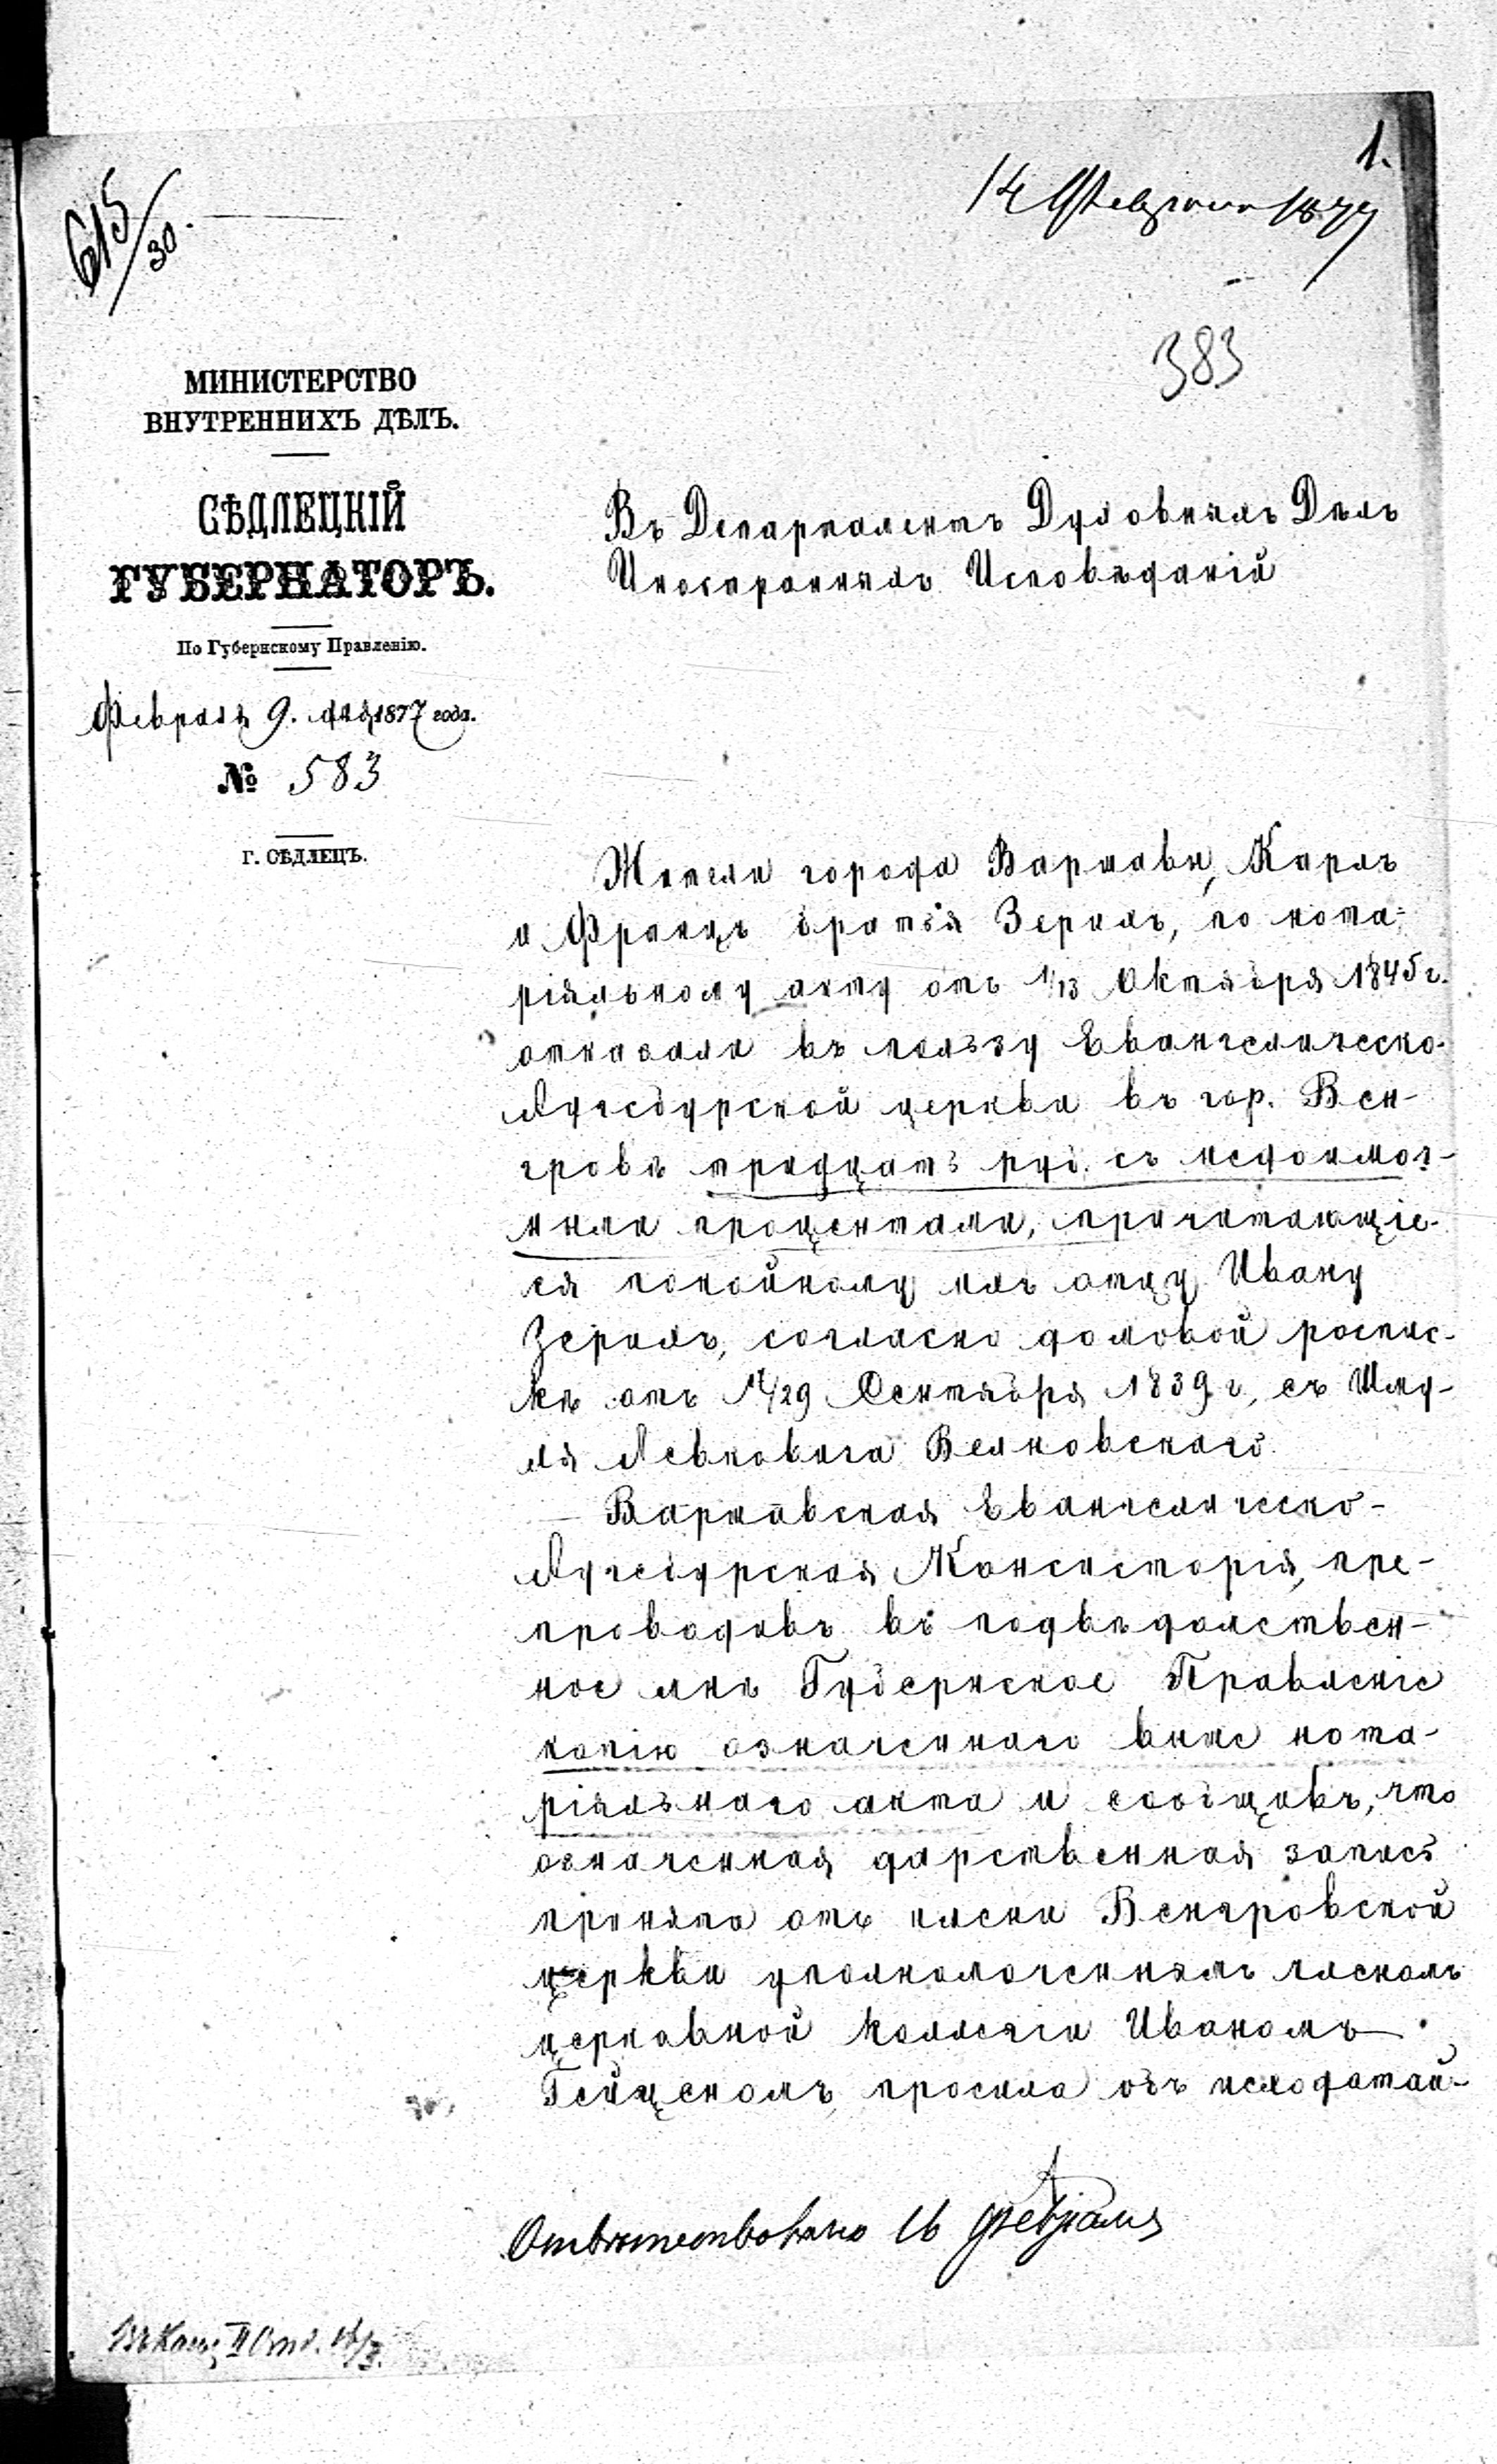 1.
14 Февраля 1877
615/30.
383
МИНИСТЕРСТВО
ВНУТРЕННИХЪ ДѢЛЪ.
СѢДЛЕЦКІЙ
ГУБЕРНАТОРЪ.
По Губернскому Правленію.
Февраля 9. дня 1877 года.
№ 583
Г. СѢДЛЕЦЪ.
Въ Департаментъ Духовныхъ Дѣлъ
Иностранныхъ Исповѣданій
Жители города Варшавы, Карлъ
и Францъ братья Зерихъ, по нота-
ріяльному акту отъ 1/13 Октября 1845 г.
отказали въ пользу Евангелическо-
Аугсбурской церкви въ гор. Вен-
гровѣ тридцать руб. съ недоимоч-
ными процентами, причитающіе-
ся покойному ихъ отцу Ивану
Зерихъ, согласно долговой роспис-
кѣ отъ 17/29 Сентября 1839 г., съ Шму-
ля Левковича Велковскаго.
Варшавская Евангелическо-
Аугсбурская Консисторія, пре-
проводивъ въ подвѣдомствен-
ное мнѣ Губернское Правленіе
копію означеннаго выше нота-
ріяльнаго акта и сообщивъ, что
означенная дарственная запись
принята отъ имени Венгровской
церкви уполномоченнымъ членомъ
церковной коллегіи Иваномъ
Гейценомъ, просила объ исходатай-
Отвѣтствовано 16 Февраля
II Отд.